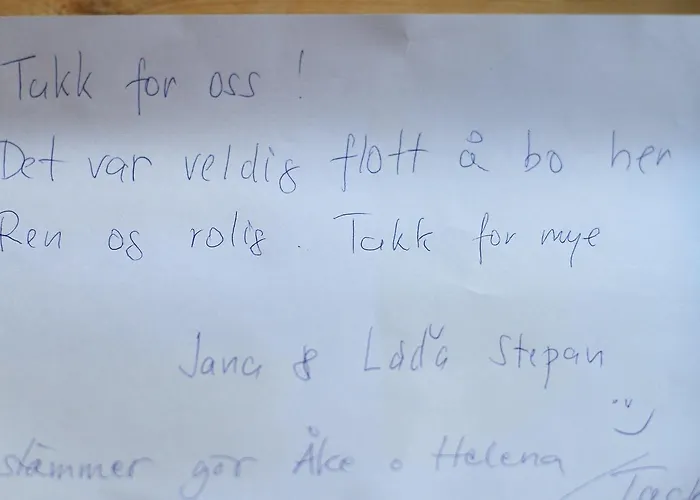 Takk for oss !
Det var veldig flott å bo her
Ren og rolig. Takk for mye
Jana & Láďa Stepan
stämmer gör Åke o Helena
Tack